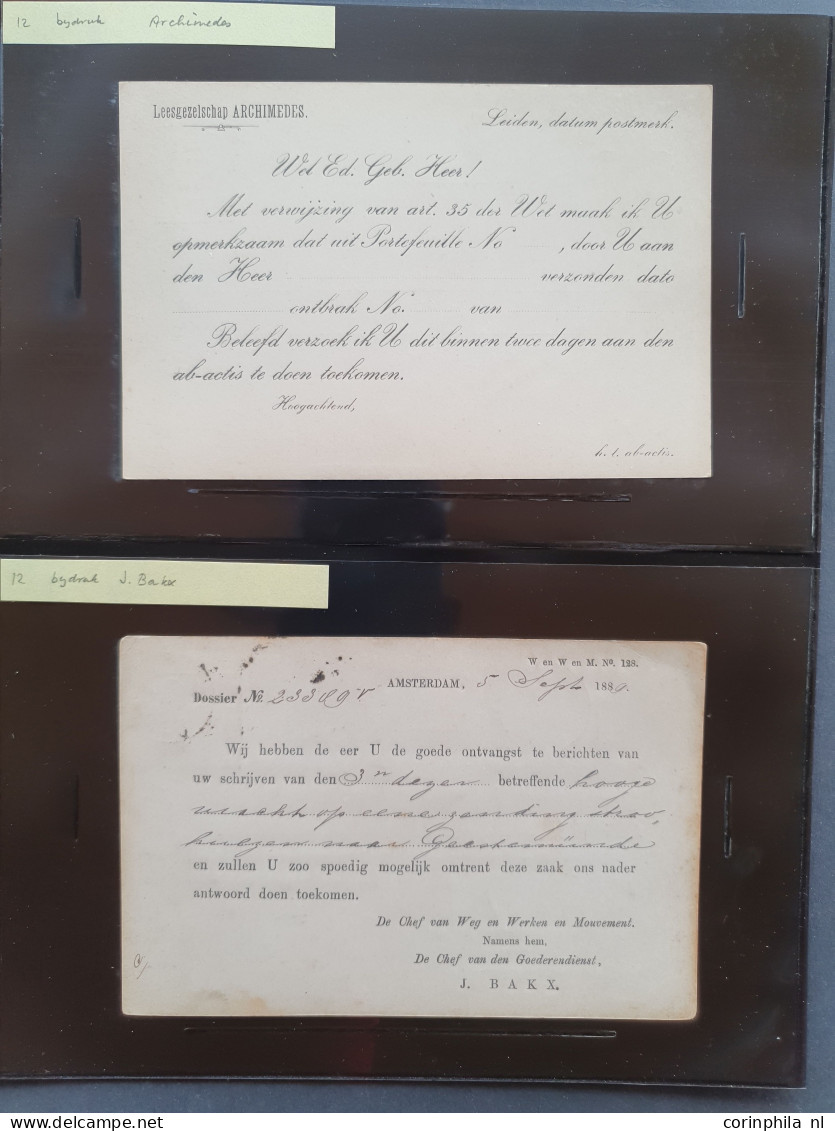 12 bydruk Archimedes
Leesgezelschap ARCHIMEDES.
Leiden, datum postmerk.
Wel Ed. Geb. Heer!
Met verwijzing van art. 35 der Wet maak ik U
opmerkzaam dat uit Portefeuille No , door U aan
den Heer verzonden dato
ontbrak No. van
Beleefd verzoek ik U dit binnen twee dagen aan den
ab-actis te doen toekomen.
Hoogachtend,
h. t. ab-actis.
12 bydruk J. Bakx
W en W en M. No. 128.
AMSTERDAM, 5 Sept 1889.
Dossier No.
Wij hebben de eer U de goede ontvangst te berichten van
uw schrijven van den 3en dezer betreffende hooge
vracht op eene zending stroo,
hulzen naar Geestemünde
en zullen U zoo spoedig mogelijk omtrent deze zaak ons nader
antwoord doen toekomen.
De Chef van Weg en Werken en Mouvement.
Namens hem,
De Chef van den Goederendienst,
J. BAKX.
corinphila nl